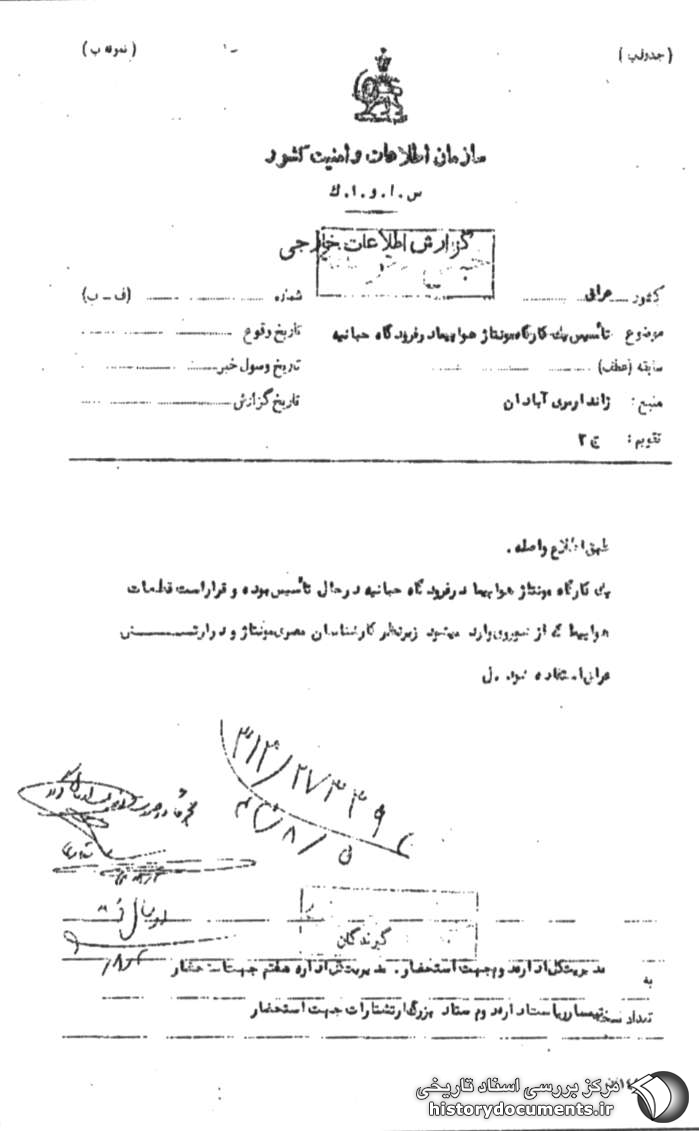 (جدول ب) (نمونه ب)
سازمان اطلاعات و امنیت کشور
س.ا.و.ا.ك
گزارش اطلاعات خارجی
کشور عراق شماره (ف-ب)
موضوع تأسیس یك کارگاه مونتاژ هواپیما در فرودگاه حبانیه تاریخ وقوع
سابقه (عطف) تاریخ وصول خبر
منبع: ژاندارمری آبادان تاریخ گزارش
تقویم: ج ۲
طبق اطلاع واصله.
یك کارگاه مونتاژ هواپیما در فرودگاه حبانیه در حال تأسیس بوده و قرار است قطعات
هواپیما که از شوروی وارد میشود زیر نظر کارشناسان مصری مونتاژ و در ارتش
عراق استفاده شود. ل
۳۱۲/۲۷۳۳۹
گیرندگان
به مدیریت کل اداره دوم جهت استحضار. مدیریت کل اداره هفتم جهت استحضار
تعداد نسخه تیمسار ریاست اداره دوم ستاد بزرگ ارتشتاران جهت استحضار
مرکز بررسی اسناد تاریخی
historydocuments.ir